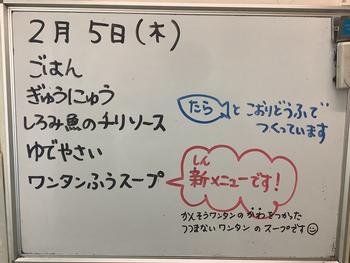 2月5日(木)
ごはん
ぎゅうにゅう
しろみ魚のチリソース
たらとこおりどうふで
つくっています
ゆでやさい
ワンタンふうスープ
しん
新メニューです!
かんそうワンタンのかわをつかった
つつまないワンタンのスープです